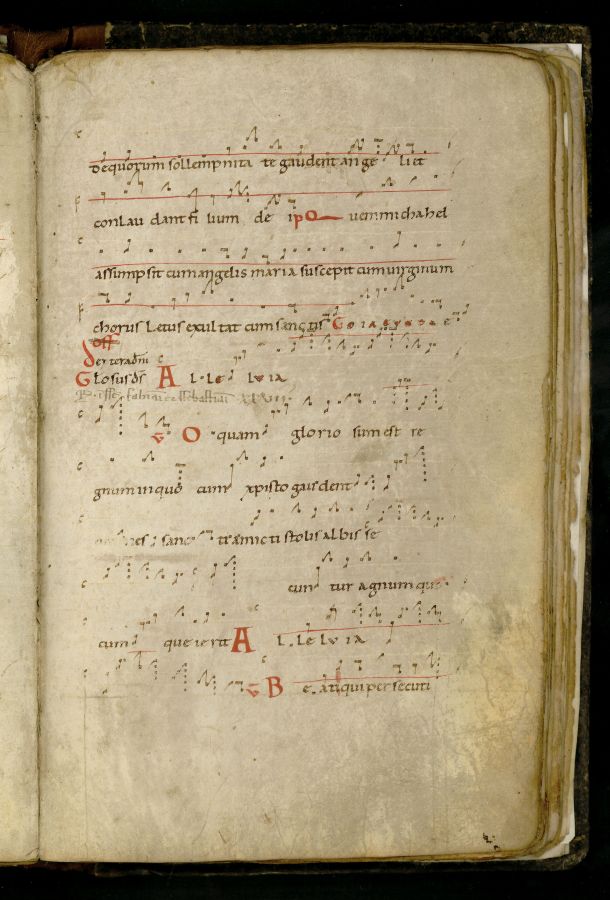 dequorum sollempnita te gaudent ange li et
conlau dant fi lium de i po uem michahel
assumpsit cum angelis maria suscepit cum uirginum
chorus Letus exul tat cum sanctis Gloria
off
Glosus ds A l le l uia
v O quam glorio sum est re
gnum in quo cum xpisto gaudent
sanc ti amicti stolis albis se
cun tur agnum que
cum que ierit A l le l uia
v B e ati qui persecuti